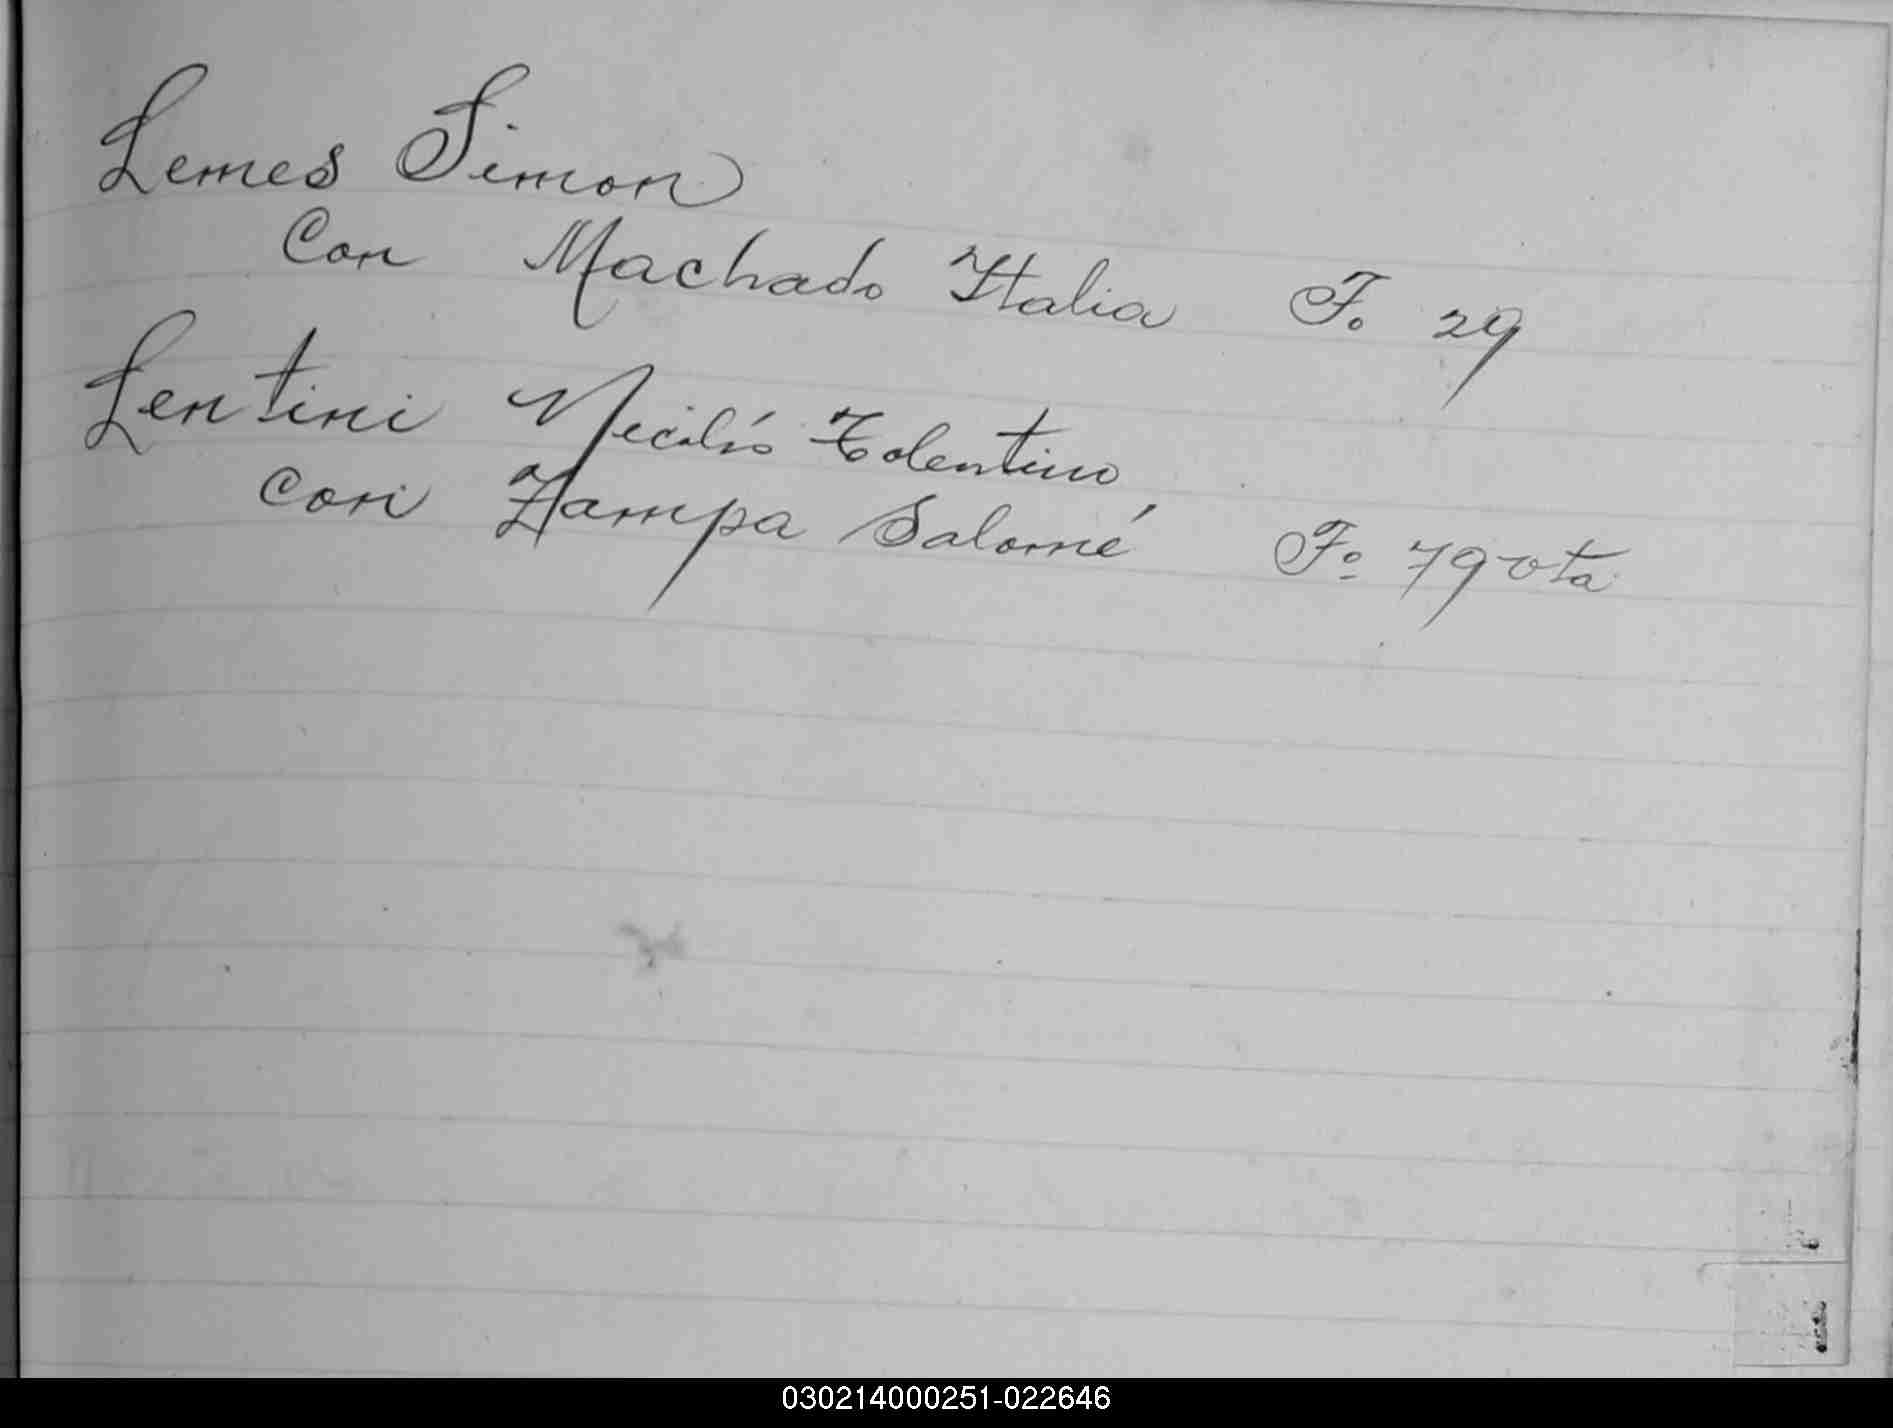 Lemes Simon
Con Machado Italia Fo 29
Lentini Nicolás Tolentino
con Zampa Salomé Fo 79 vta
030214000251-022646